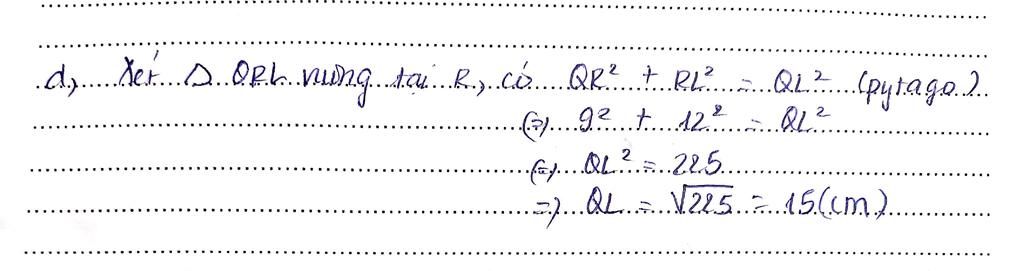 d, Xét △ QRL vuông tại R, có QR² + RL² = QL² (pytago)
(=) 9² + 12² = QL²
(=) QL² = 225
=) QL = √225 = 15(cm)